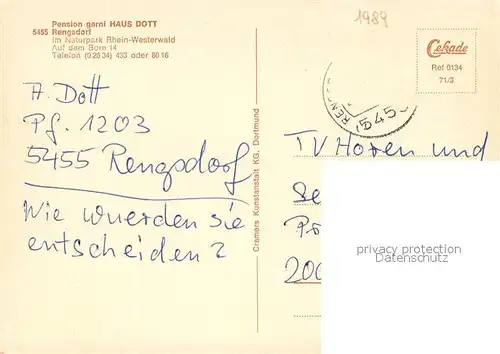 Pension garni HAUS DOTT
5455 Rengsdorf
Im Naturpark Rhein-Westerwald
Auf dem Born 14
Telefon (0 26 34) 433 oder 80 16
1989
Cekade
Ref 0134
71/3
545
A. Dott
Pf. 1203
5455 Rengsdorf
Wie wuerden sie
entscheiden?
Cramers Kunstanstalt KG, Dortmund
TV Hören und
Se
200
privacy protection
Datenschutz